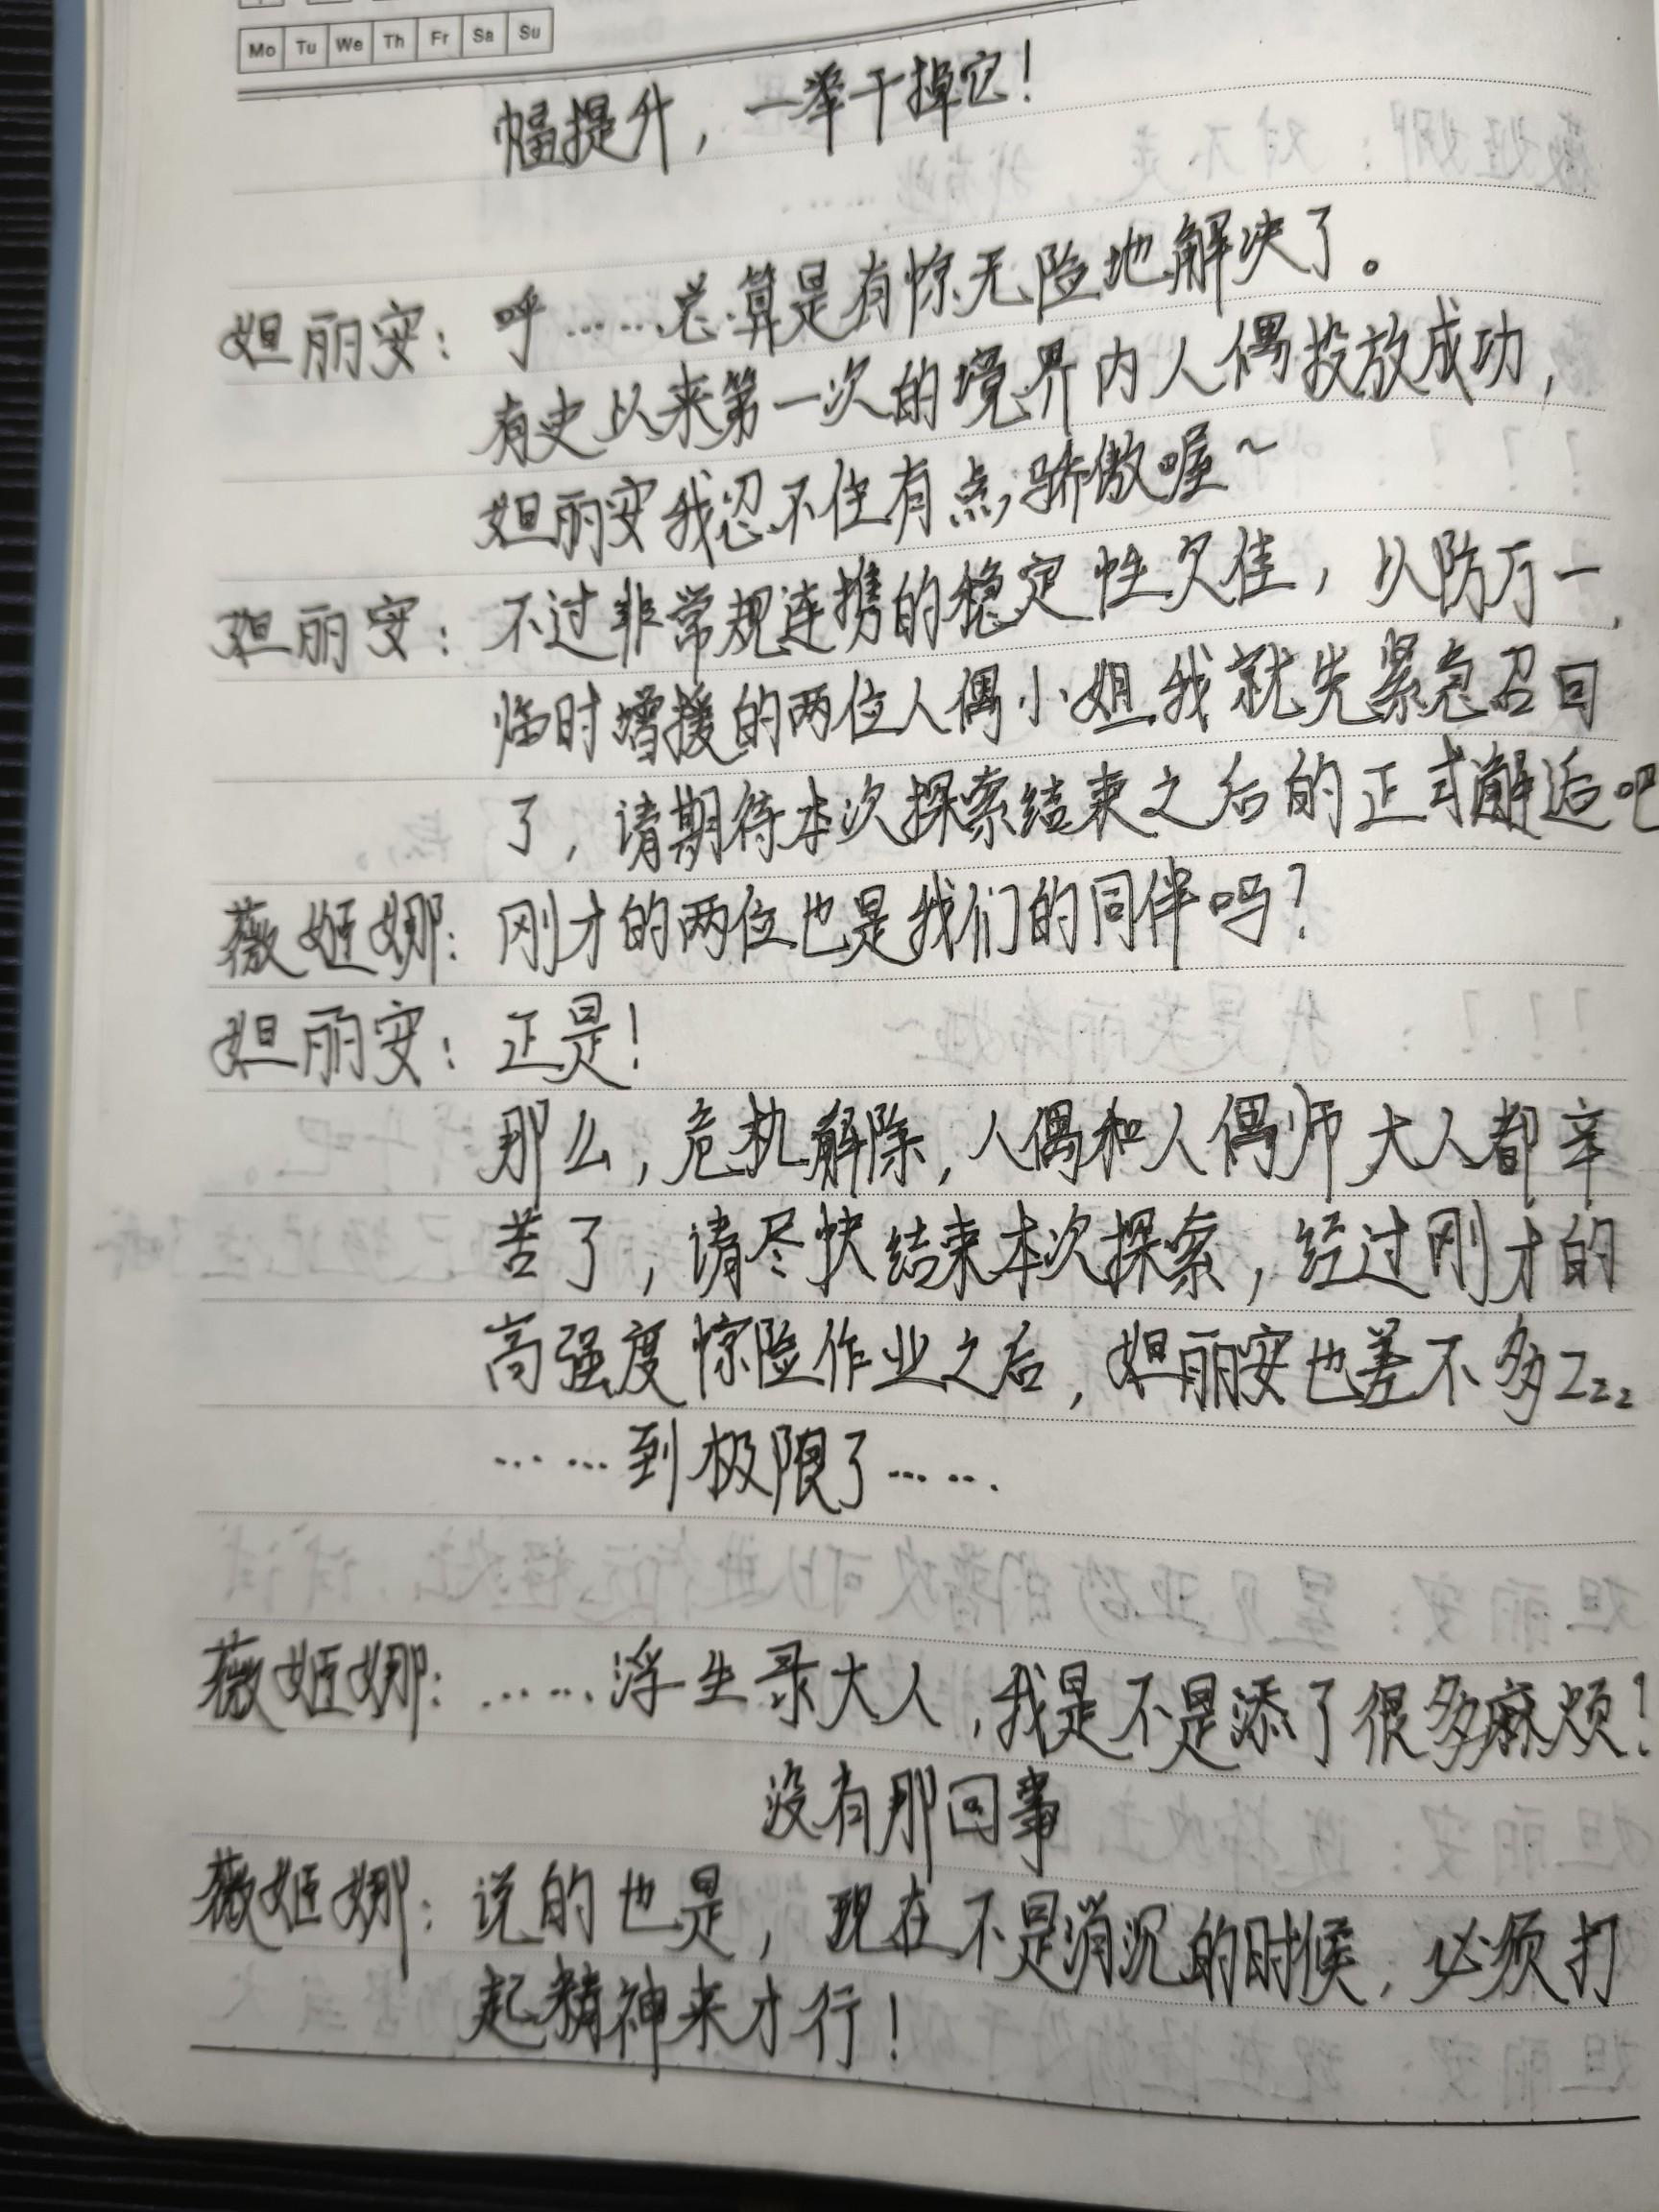 Mo Tu We Th Fr Sa Su
幅提升，一举干掉它！
妲丽安：呼……总算是有惊无险地解决了。
有史以来第一次的境界内人偶投放成功，
妲丽安我忍不住有点骄傲喔～
妲丽安：不过非常规连携的稳定性欠佳，以防万一，
临时增援的两位人偶小姐我就先紧急召回
了，请期待本次探索结束之后的正式邂逅吧
薇姬娜：刚才的两位也是我们的同伴吗？
妲丽安：正是！
那么，危机解除，人偶和人偶师大人都辛
苦了，请尽快结束本次探索，经过刚才的
高强度惊险作业之后，妲丽安也差不多Zzz
……到极限了……
薇姬娜：……浮生录大人，我是不是添了很多麻烦！
没有那回事
薇姬娜：说的也是，现在不是消沉的时候，必须打
起精神来才行！